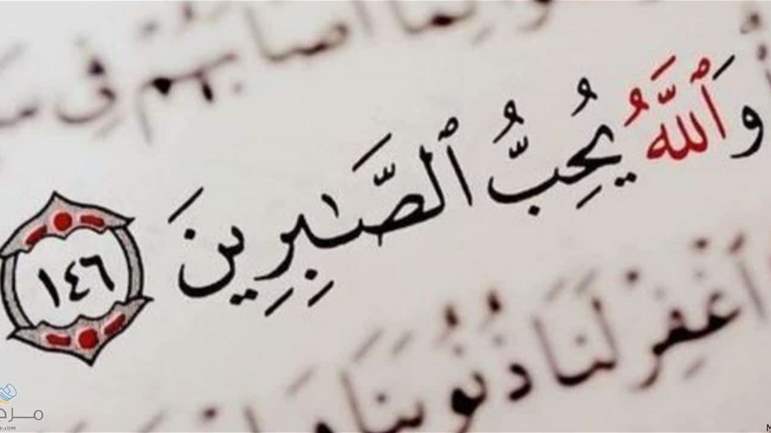 لما أصابهم في
وَٱللَّهُ يُحِبُّ ٱلصَّـٰبِرِينَ ١٤٦
ٱغْفِرْ لَنَا ذُنُوبَنَا